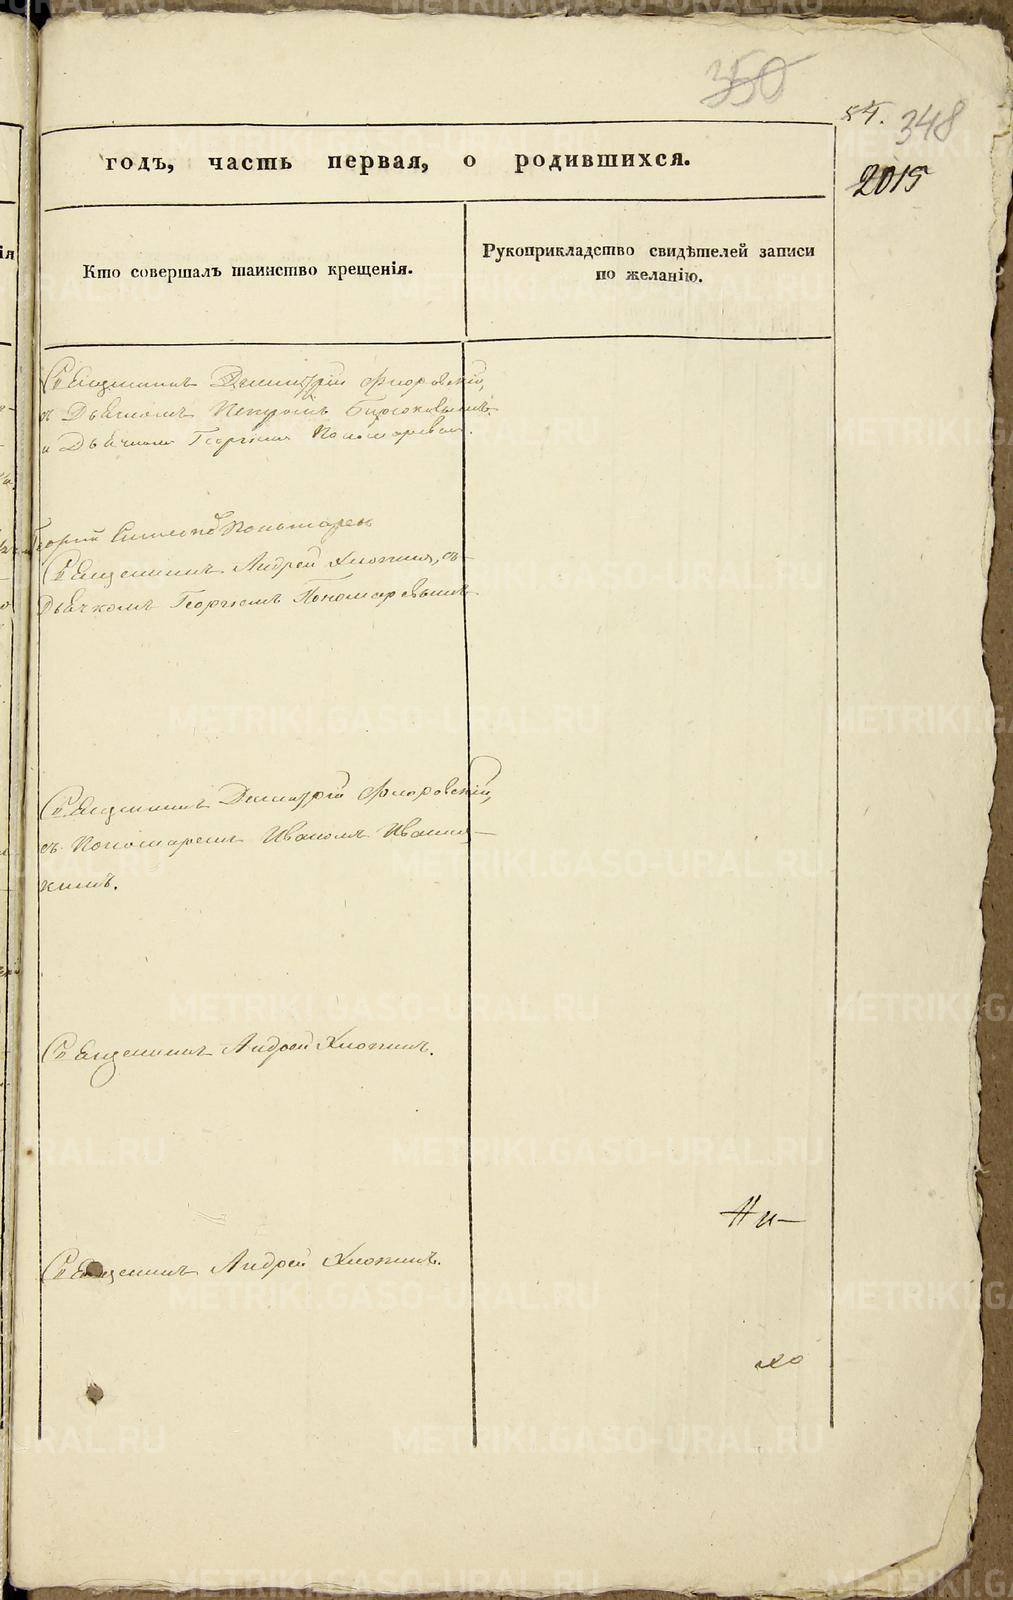 350
54.
348
2015
годъ, часть первая, о родившихся.
Кто совершалъ таинство крещенія.
Рукоприкладство свидѣтелей записи
по желанію.
Священникъ Димитрій Флоровскій,
съ Дьякономъ Бирюковымъ
и Дьячкомъ Георгіем Пономаревым.
Георгій Пономарев
Священникъ Андрей Хлопинъ, съ
Дьячкомъ Георгіемъ Пономаревымъ
Священникъ Димитрій Флоровскій,
съ Пономаремъ Иваномъ Иваня-
кинъ.
Священникъ Андрей Хлопинъ.
Священникъ Андрей Хлопинъ.
METRIKI.GASO-URAL.RU